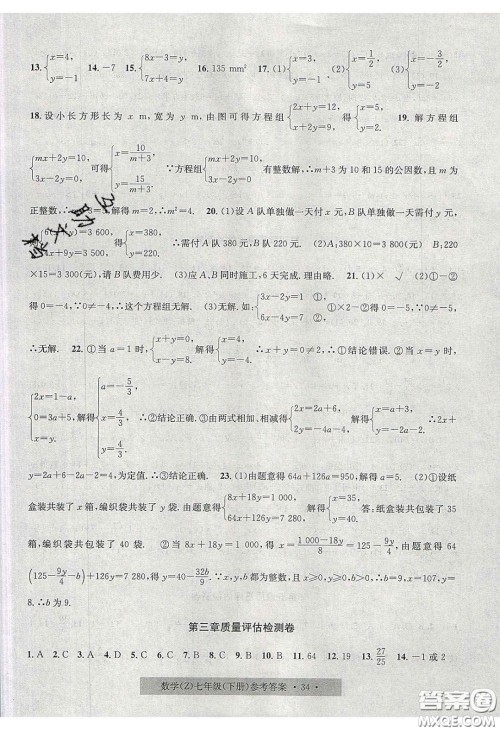 13. {x=4, y=-1 14. -7 15. {8x-3=y, 7x+4=y 16. 135 mm² 17. (1) {x=3, y=-1. (2) {x=1/2, y=5. (3) {x=-3/2, y=2
18. 设小长方形长为 x m,宽为 y m,由图可得方程组 {2x+y=12, x+2y=9. 得 {x=5, y=2. 19. 解方程组
{mx+2y=10, 3x-2y=0, 可得 {x=10/(m+3), y=15/(m+3). ∵方程组 {mx+2y=10, 3x-2y=0 有整数解,∴m+3 为 10 和 15 的公因数,且 m 为
正整数,解得 m=2,∴m²=4. 20. (1)设 A 队单独做一天付 x 元,B 队单独做一天需付 y 元,
y=3 600, x+9y=3 600, ∴需付 A 队 380 元,B 队 220 元. (2)A:380×10=3 800(元) B:220
×15=3 300(元),请 B 队费用少. (3)应 A,B 同时施工,6 天完成. 理由略. 21. (1)× √ (2)①-②
得 0=-4,∵0≠-4,∴这个方程组无解. (3)无解. 如: {3x-2y=1, 6x-4y=7 ①×2-②得 0=-5,∵0≠-5,
∴无解. 22. ①当 a=1 时, {x+y=0, x-y=8. 解得 {x=4, y=-4. ∴x+y=0≠2,∴①结论错误. ②当 x=y 时,
{2x=1-a, 0=3a+5, x=y, 解得 {a=-5/3, x=4/3, y=4/3. ∴②结论正确. ③由两式相加、相减,得 {2x=2a+6, 2y=-4a-2, 解得 {x=a+3, y=-2a-1. ∴2x+
y=2a+6-2a-1=5. ∴③结论正确. 23. (1)由题意得 64a+126a=950,解得 a=5. (2)①设纸
盒装共装了 x 箱,编织袋共装了 y 袋. 由题意得 {8x+18y=1 000, 64x+126y=7 280, 解得 {x=35, y=40. 答:纸盒装共包装了 35
箱,编织袋共包装了 40 袋. ②当 8x+18y=1 000,得 x=(1 000-18y)/8=125-9y/4,由题意得 64
(125-9y/4-b)+126y=7 280,得 y=40-32b/9. ∵x,y,b 都为整数,且 x≥0,y≥0,b>0,∴b=9,x=107,
y=8.∴b 为 9.
第三章质量评估检测卷
1. A 2. C 3. A 4. D 5. A 6. D 7. A 8. B 9. C 10. C 11. 64 12. 19 13. 27/25 14. -1或2
数学(Z)七年级(下册)参考答案 · 34 ·
答案圈
MXQE.COM